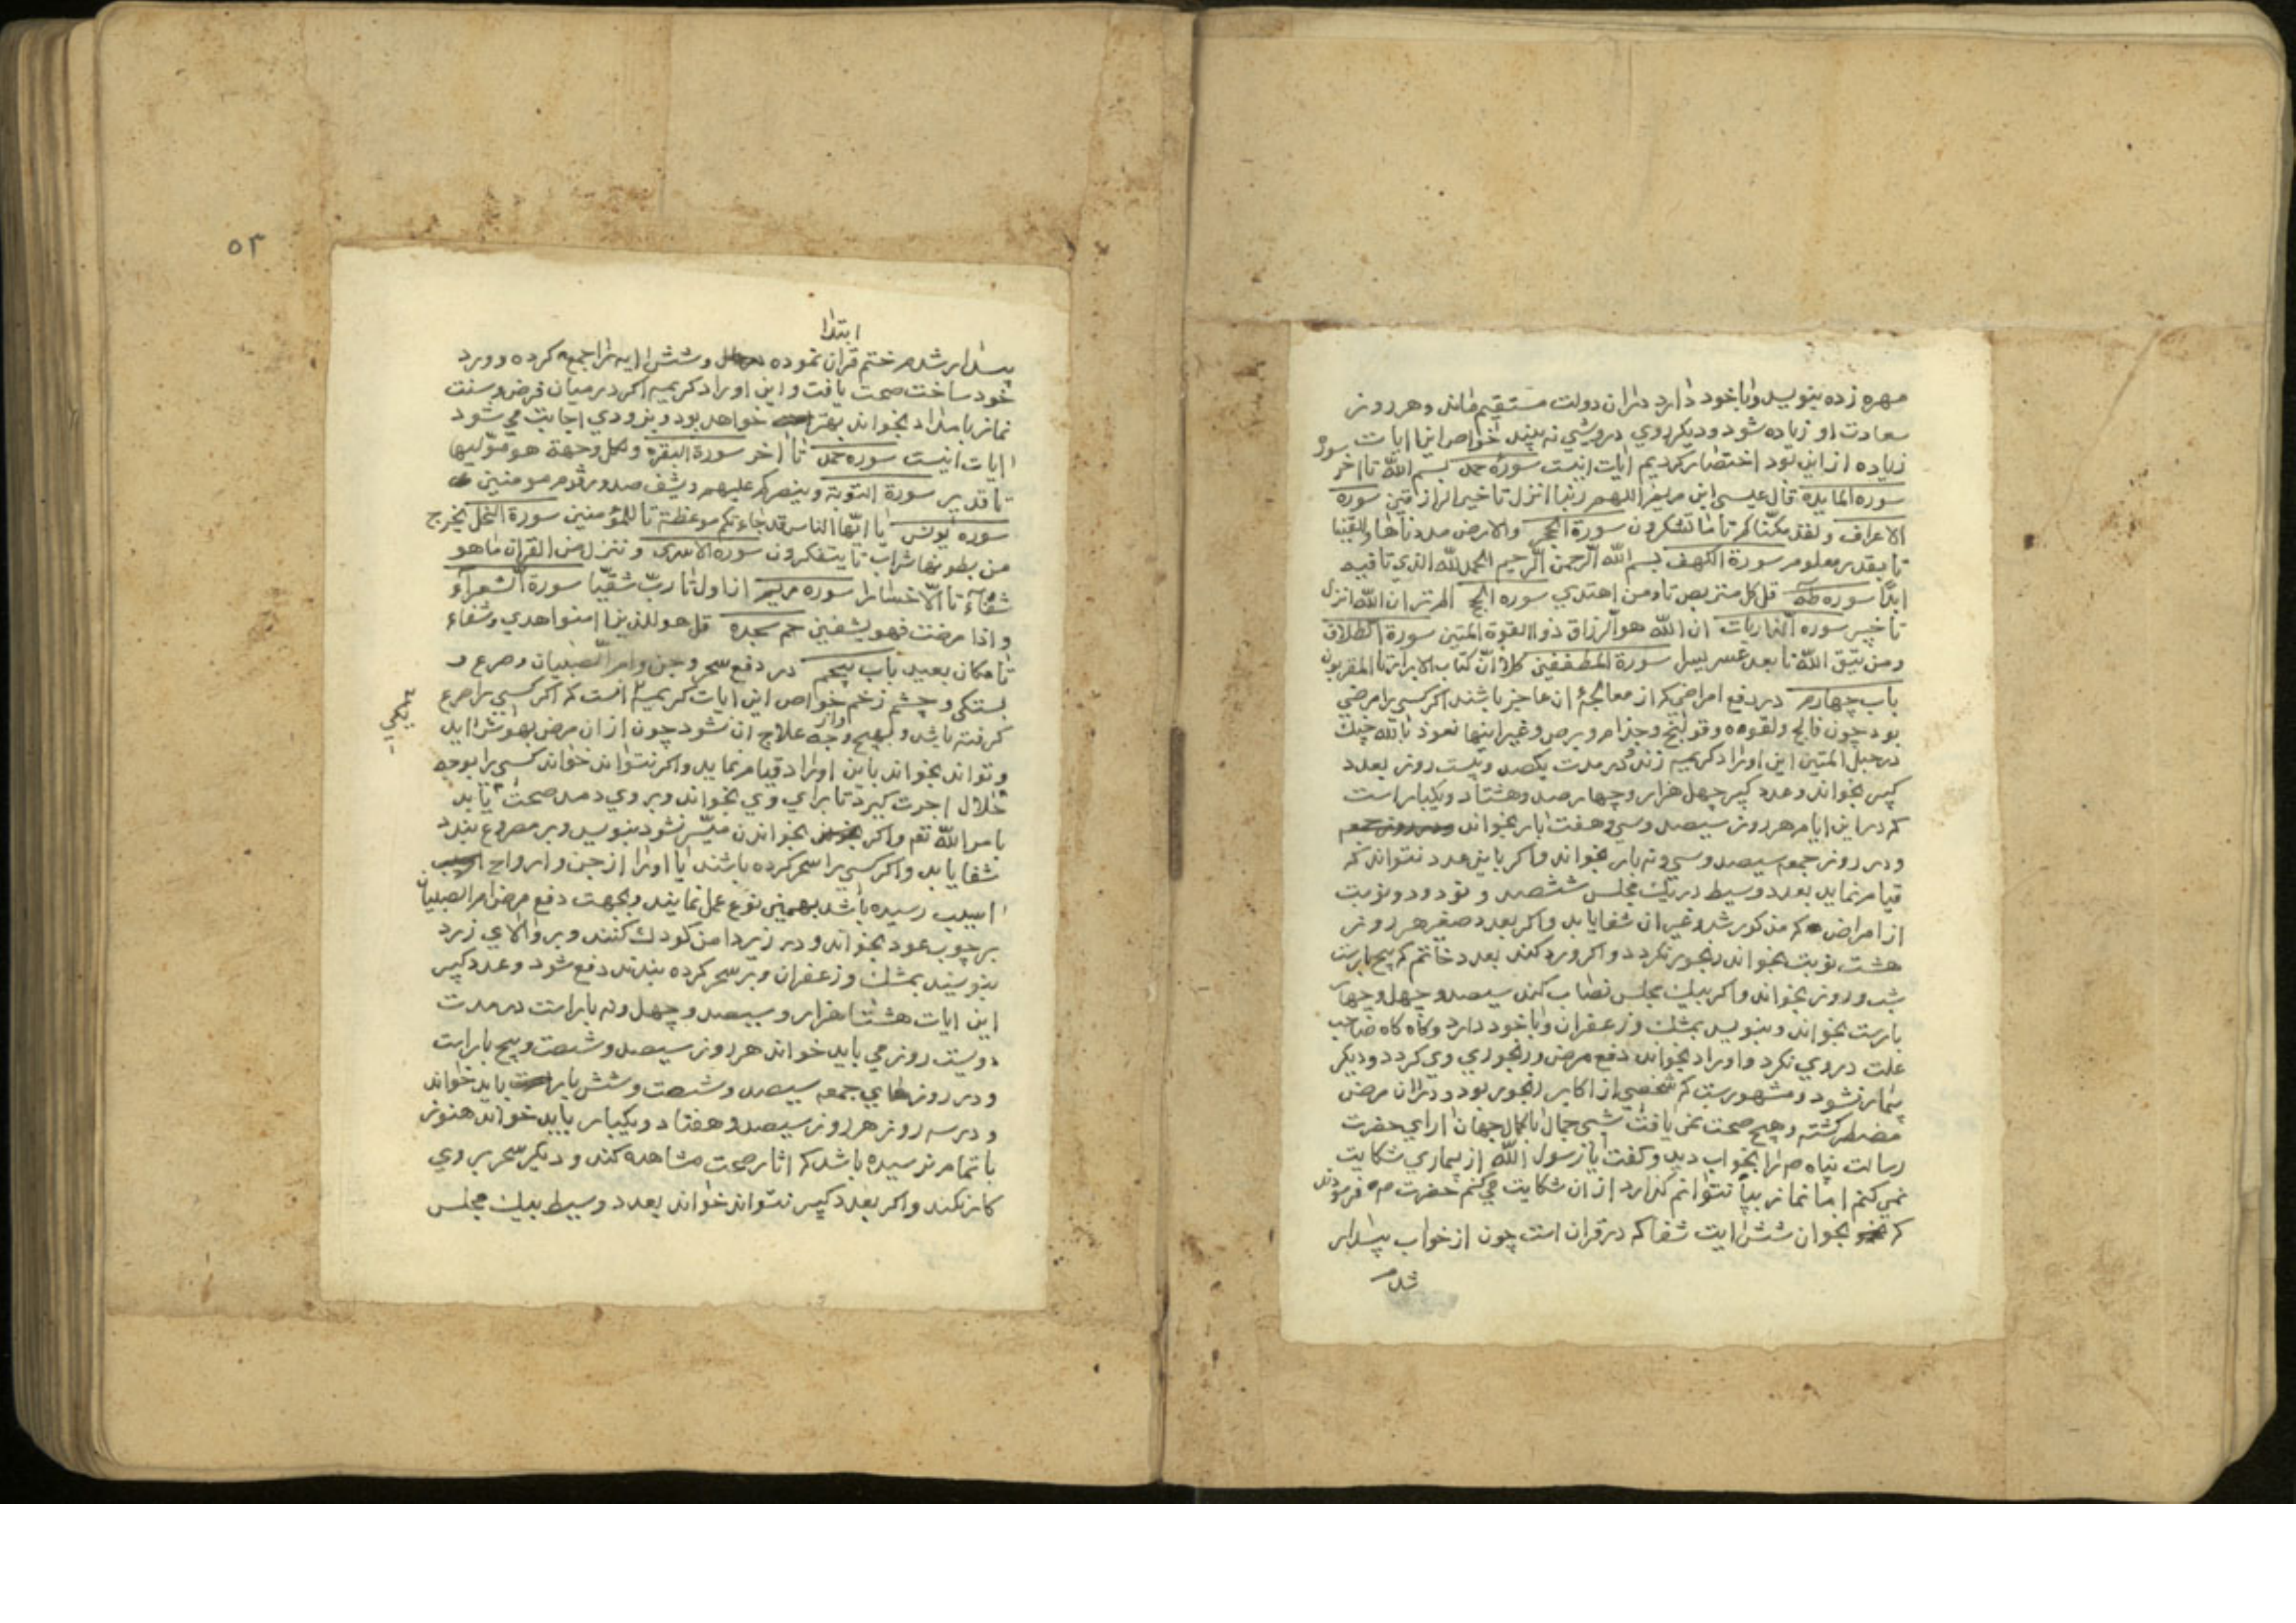 مهره زده بنویسد و با خود دارد دران دولت مستقیم ماند و هر روز
سعادت او زیاده شود و دیکر روی درویشی نه بیند خواص این ایات
زیاده ازین بود اختصار کردیم ایات اینست سورۀ حمد بسم الله تا اخر سوره
سوره المایده قال عیسی ابن مریم اللهم ربنا انزل تا خیر الرازقین سوره
الاعراف ولقد مکناکم تا ما تشکرون سورة الحجر والارض مددناها والقینا
تا بقدر معلوم سورة الکهف بسم الله الرحمن الرحیم الحمد لله الذی تا فیه
ابدًا سوره طه قل کل متربص تا ومن اهتدی سوره الحج الم تر ان الله انزل
تا خبیر سوره الذاریات ان الله هو الرزاق ذو القوة المتین سورة الطلاق
ومن یتق الله تا بعد عسر یسرا سورة المطففین کلا ان کتاب الابرار تا المقربون
باب چهارم در دفع امراضی که از معالجۀ ان عاجز باشند اکر کسی را مرضی
بود چون فالج و لقوه و قولنج و جذام و برص و غیر اینها نعوذ بالله چنک
در حبل المتین این اوراد کریمه زند و در مدت یکصد و بیست روز بعدد
کبیر بخواند و عدد کبیر چهل هزار و چهار صد و هشتاد و یکبار است
که در این ایام هر روز سیصد و سی و هفت بار بخواند
و در روز جمعه سیصد و سی و نه بار بخواند و اکر باین عدد نتواند که
قیام نماید بعدد وسیط در یک مجلس ششصد و نود و دو نوبت
از امراض که مذکور شد و غیر ان شفا یابد و اکر بعدد صغیر هر روز
هشت نوبت بخواند رنجور نکردد و اکر ورد کند بعدد خاتم که پنج بارست
شب و روز بخواند و اکر بیک مجلس نصاب کند سیصد و چهل و چهار
بارست بخواند و بنویسد بمشک و زعفران و با خود دارد و کاه کاه صاحب
علت در وی نکرد و اوراد بخواند دفع مرض و رنجوری وی کردد و دیکر
بیمار نشود و مشهورست که شخصی از اکابر رنجور بود و دران مرض
مضطر کشته و هیچ صحت نمی یافت شبی جمال با کمال جهان ارای حضرت
رسالت پناه ص را بخواب دید و کفت یا رسول الله از بیماری شکایت
نمی کنم اما نماز بپا نتوانم کذارد از ان شکایت می کنم حضرت ص فرمودند
که بخوان شش ایت شفا که در قران است چون از خواب بیدار
شدم
۵۳
ابتدا
بیدار شدم ختم قران نموده و شش ایه را جمع کرده و ورد
خود ساخت صحت یافت و این اوراد کریمه اکر در میان فرض و سنت
نماز بامداد بخواند بهتر خواهد بود و بزودی اجابت می شود
ایات اینست سوره حمد تا اخر سورة البقره ولکل وجهة هو مولیها
تا قدیر سورة التوبة وینصرکم علیهم ویشف صدور قوم مومنین
سوره یونس یا ایها الناس قد جاءتکم موعظة تا للمؤمنین سورة النحل یخرج
من بطونها شراب تا یتفکرون سورة الاسری وننزل من القران ما هو
شفاء تا الا خسارا سوره مریم تا رب شقیا سورة الشعراء
واذا مرضت فهو یشفین حم سجده قل هو للذین امنوا هدی وشفاء
تا مکان بعید باب پنجم در دفع سحر و جن و ام الصبیان و صرع و
بستکی و چشم زخم خواص این ایات کریمه انست که اکر کسی را صرع
کرفته باشد و بهیچ وجه علاج ان نشود چون از ان مرض بهوش اید
و تواند بخواند باین اوراد قیام نماید و اکر نتواند خواند کسی را بوجه
حلال اجرت کیرد تا برای وی بخواند و بر وی دمد صحت یابد
بامر الله تعم و اکر بخواندن میسر نشود بنویسد و بر مصروع بندد
شفا یابد و اکر کسی را سحر کرده باشند یا او را از جن و ارواح
اسیب رسیده باشد بهمین نوع عمل نمایند و بجهت دفع مرض ام الصبیان
بر چوب عود بخواند و در زیر دامن کودک کنند و بر والای زرد
بنویسند بمشک و زعفران و بر سحر کرده بندند دفع شود و عدد کبیر
این ایات هشتاد هزار و سیصد و چهل و نه بار است در مدت
دویست روز می باید خواند هر روز سیصد و شصت و پنج بار است
و در روزهای جمعه سیصد و شصت و شش بار باید خواند
و در سه روز هر روز سیصد و هفتاد و یکبار باید خواند هنوز
باتمام نرسیده باشد که اثار صحت مشاهده کند و دیکر سحر بر وی
کار نکند و اکر بعدد کبیر نتواند خواند بعدد وسیط بیک مجلس